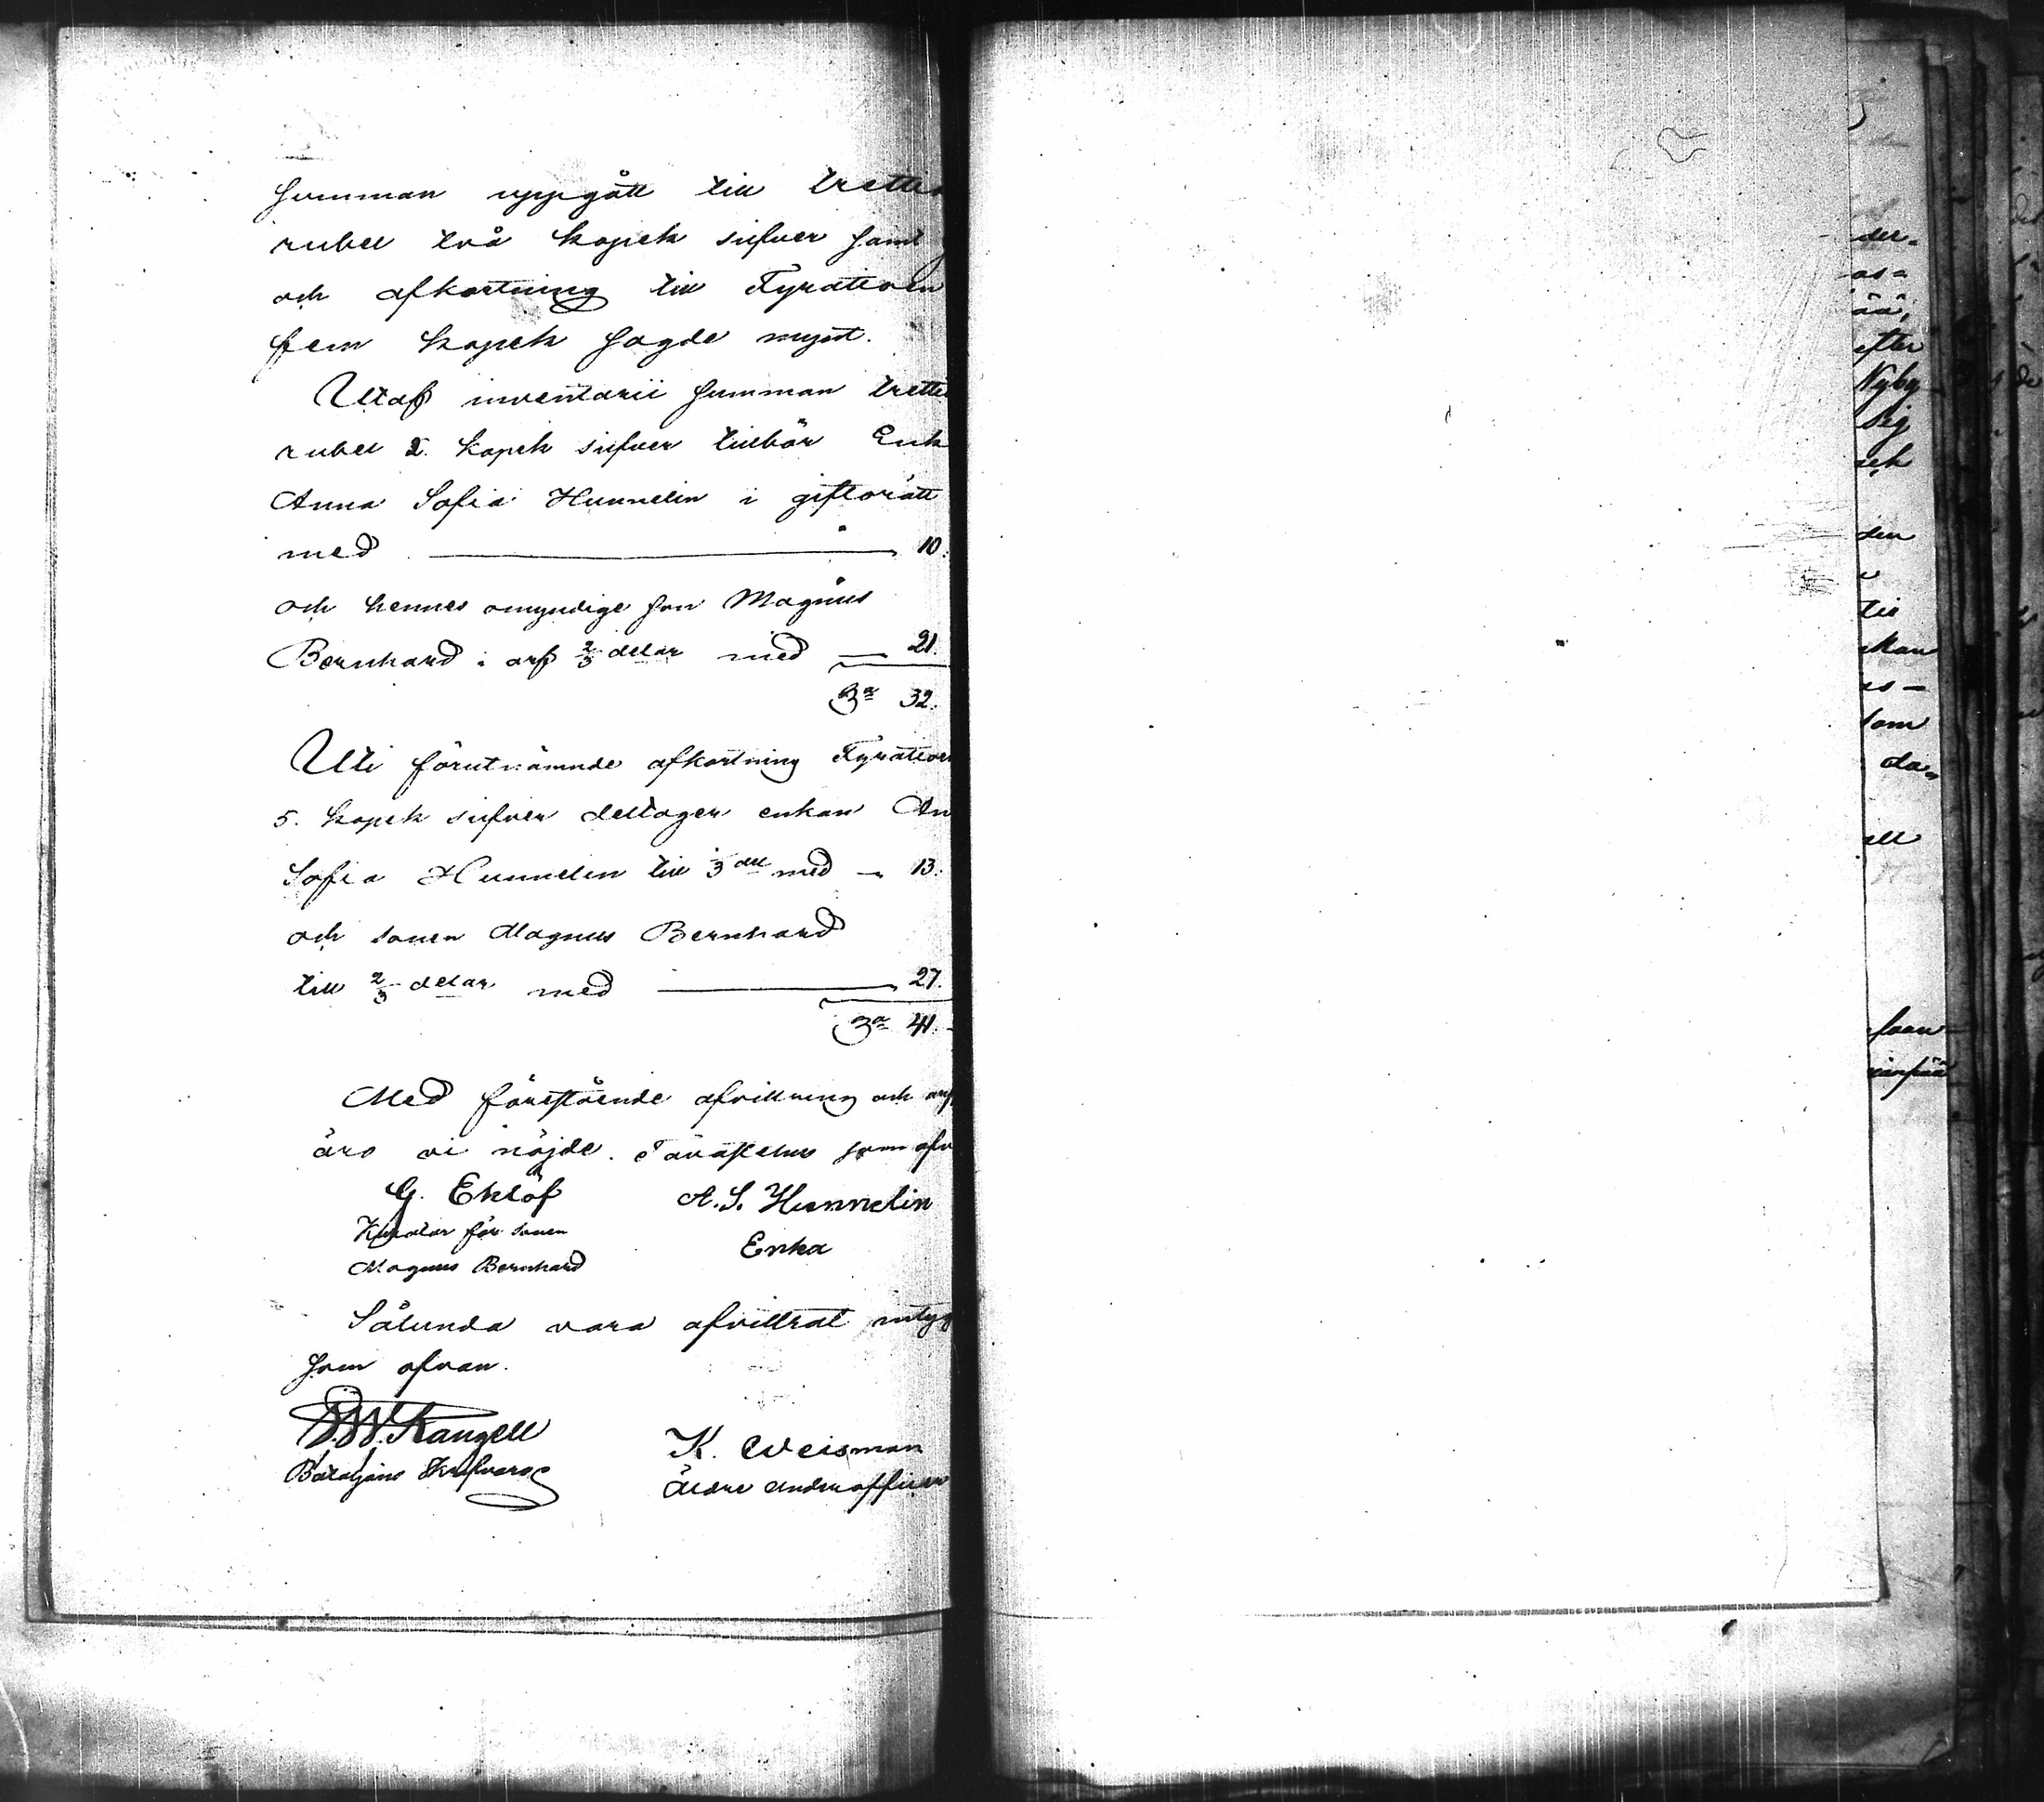 summan uppgått till trettio
rubel två kopek silfver samt
och afkortning till Fyratioen
fem kopek sagde mynt.
Utaf inventarii summan trettio
rubel 2. kopek silfver tillhör Enk
Anna Sofia Hunnelin i giftorätt
med 10.
och hennes omyndige son Magnus
Bernhard i arf 2/3 delar med 21.
Sa 32.
Uti förutnämnde afkortning Fyratioen
5. kopek silfver deltager enkan An
Sofia Hunnelin till 1/3 del med 13.
och sonen Magnus Bernhard
till 2/3 delar med 27.
Sa 41.
Med förestående afvittring och
äro vi nöjde. Tavastehus som ofv
G. Eklöf A. S. Hunnelin
Kurator för sonen Enka
Magnus Bernhard
Sålunda vara afvittrat intyg
som ofvan.
Kangell K. Weisman
Bataljons Äldre Underofficer
der-
as-
efter
Nyby
sig
och
den
till
kan
som
da-